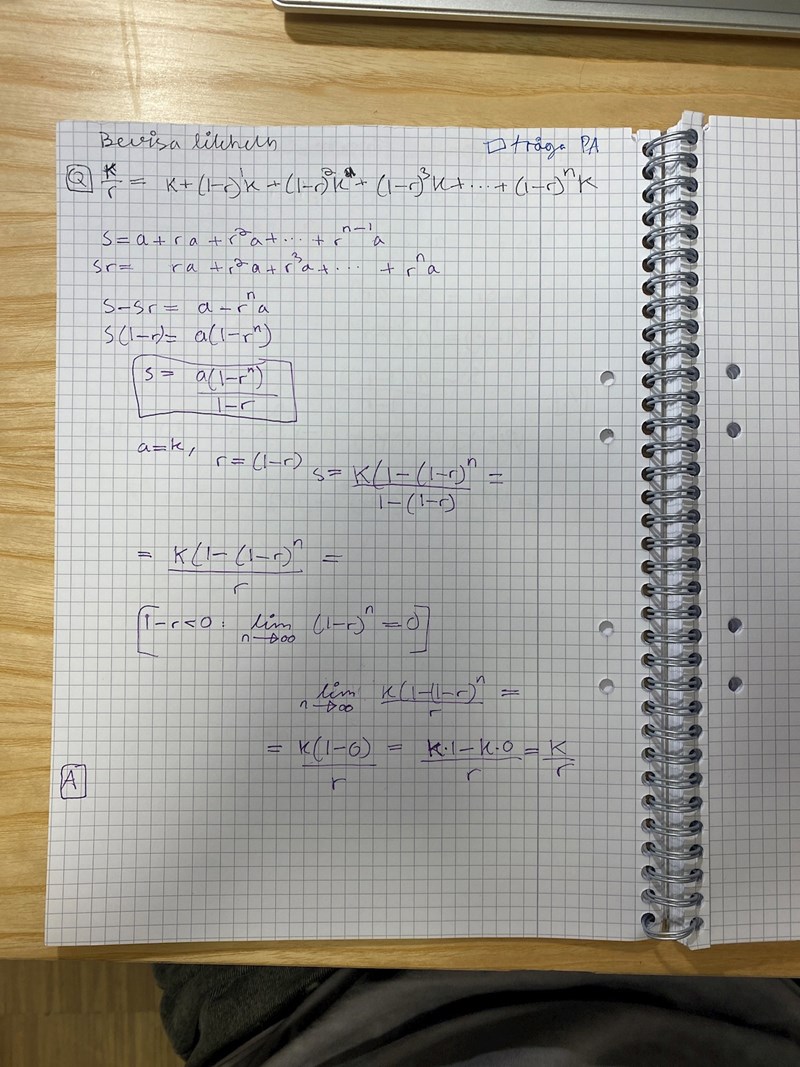 Bevisa likheten
□ fråga PA
Q K/r = K + (1-r)¹K + (1-r)²K + (1-r)³K + ... + (1-r)ⁿK
S = a + ra + r²a + ... + rⁿ⁻¹a
Sr = ra + r²a + r³a + ... + rⁿa
S - Sr = a - rⁿa
S(1-r) = a(1-rⁿ)
S = a(1-rⁿ)/1-r
a = K, r = (1-r) S = K(1-(1-r)ⁿ/1-(1-r) =
= K(1-(1-r)ⁿ/r =
[1-r<0: lim n→∞ (1-r)ⁿ = 0]
lim n→∞ K(1-(1-r)ⁿ/r =
= K(1-0)/r = K·1-K·0/r = K/r
A